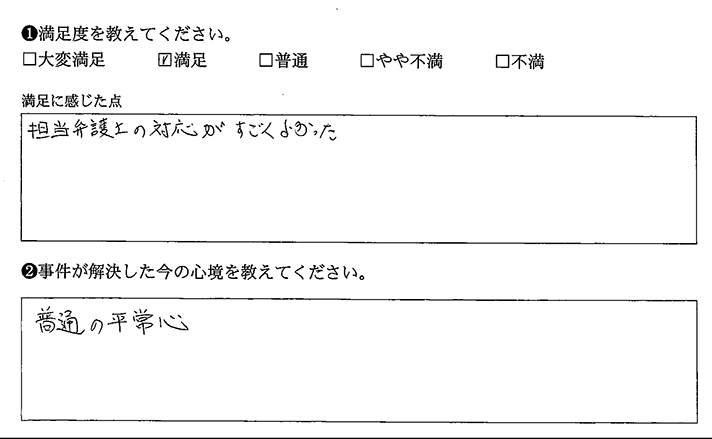 ❶満足度を教えてください。
□大変満足 ☑満足 □普通 □やや不満 □不満
満足に感じた点
担当弁護士の対応がすごくよかった
❷事件が解決した今の心境を教えてください。
普通の平常心